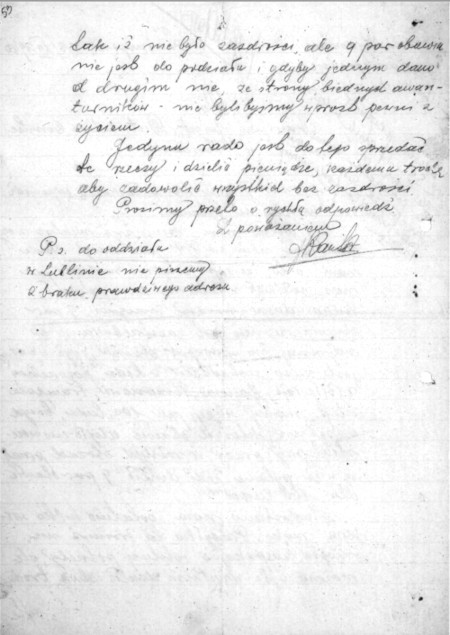 tak iż nie było zazdrości, ale 9 par obuwia
nie jest do podziału i gdyby jednym dano
a drugim nie, ze strony biednych awan-
turników - nie bylibyśmy wprost pewni z
życiem.
Jedyna rada jest do tego sprzedać
te rzeczy i dzielić pieniądze, każdemu trochę
aby zadowolić wszystkich bez zazdrości.
Prosimy przeto o rychłą odpowiedź
Z poważaniem
P s. do oddziału
w Lublinie nie piszemy
z braku prawdziwego adresu.